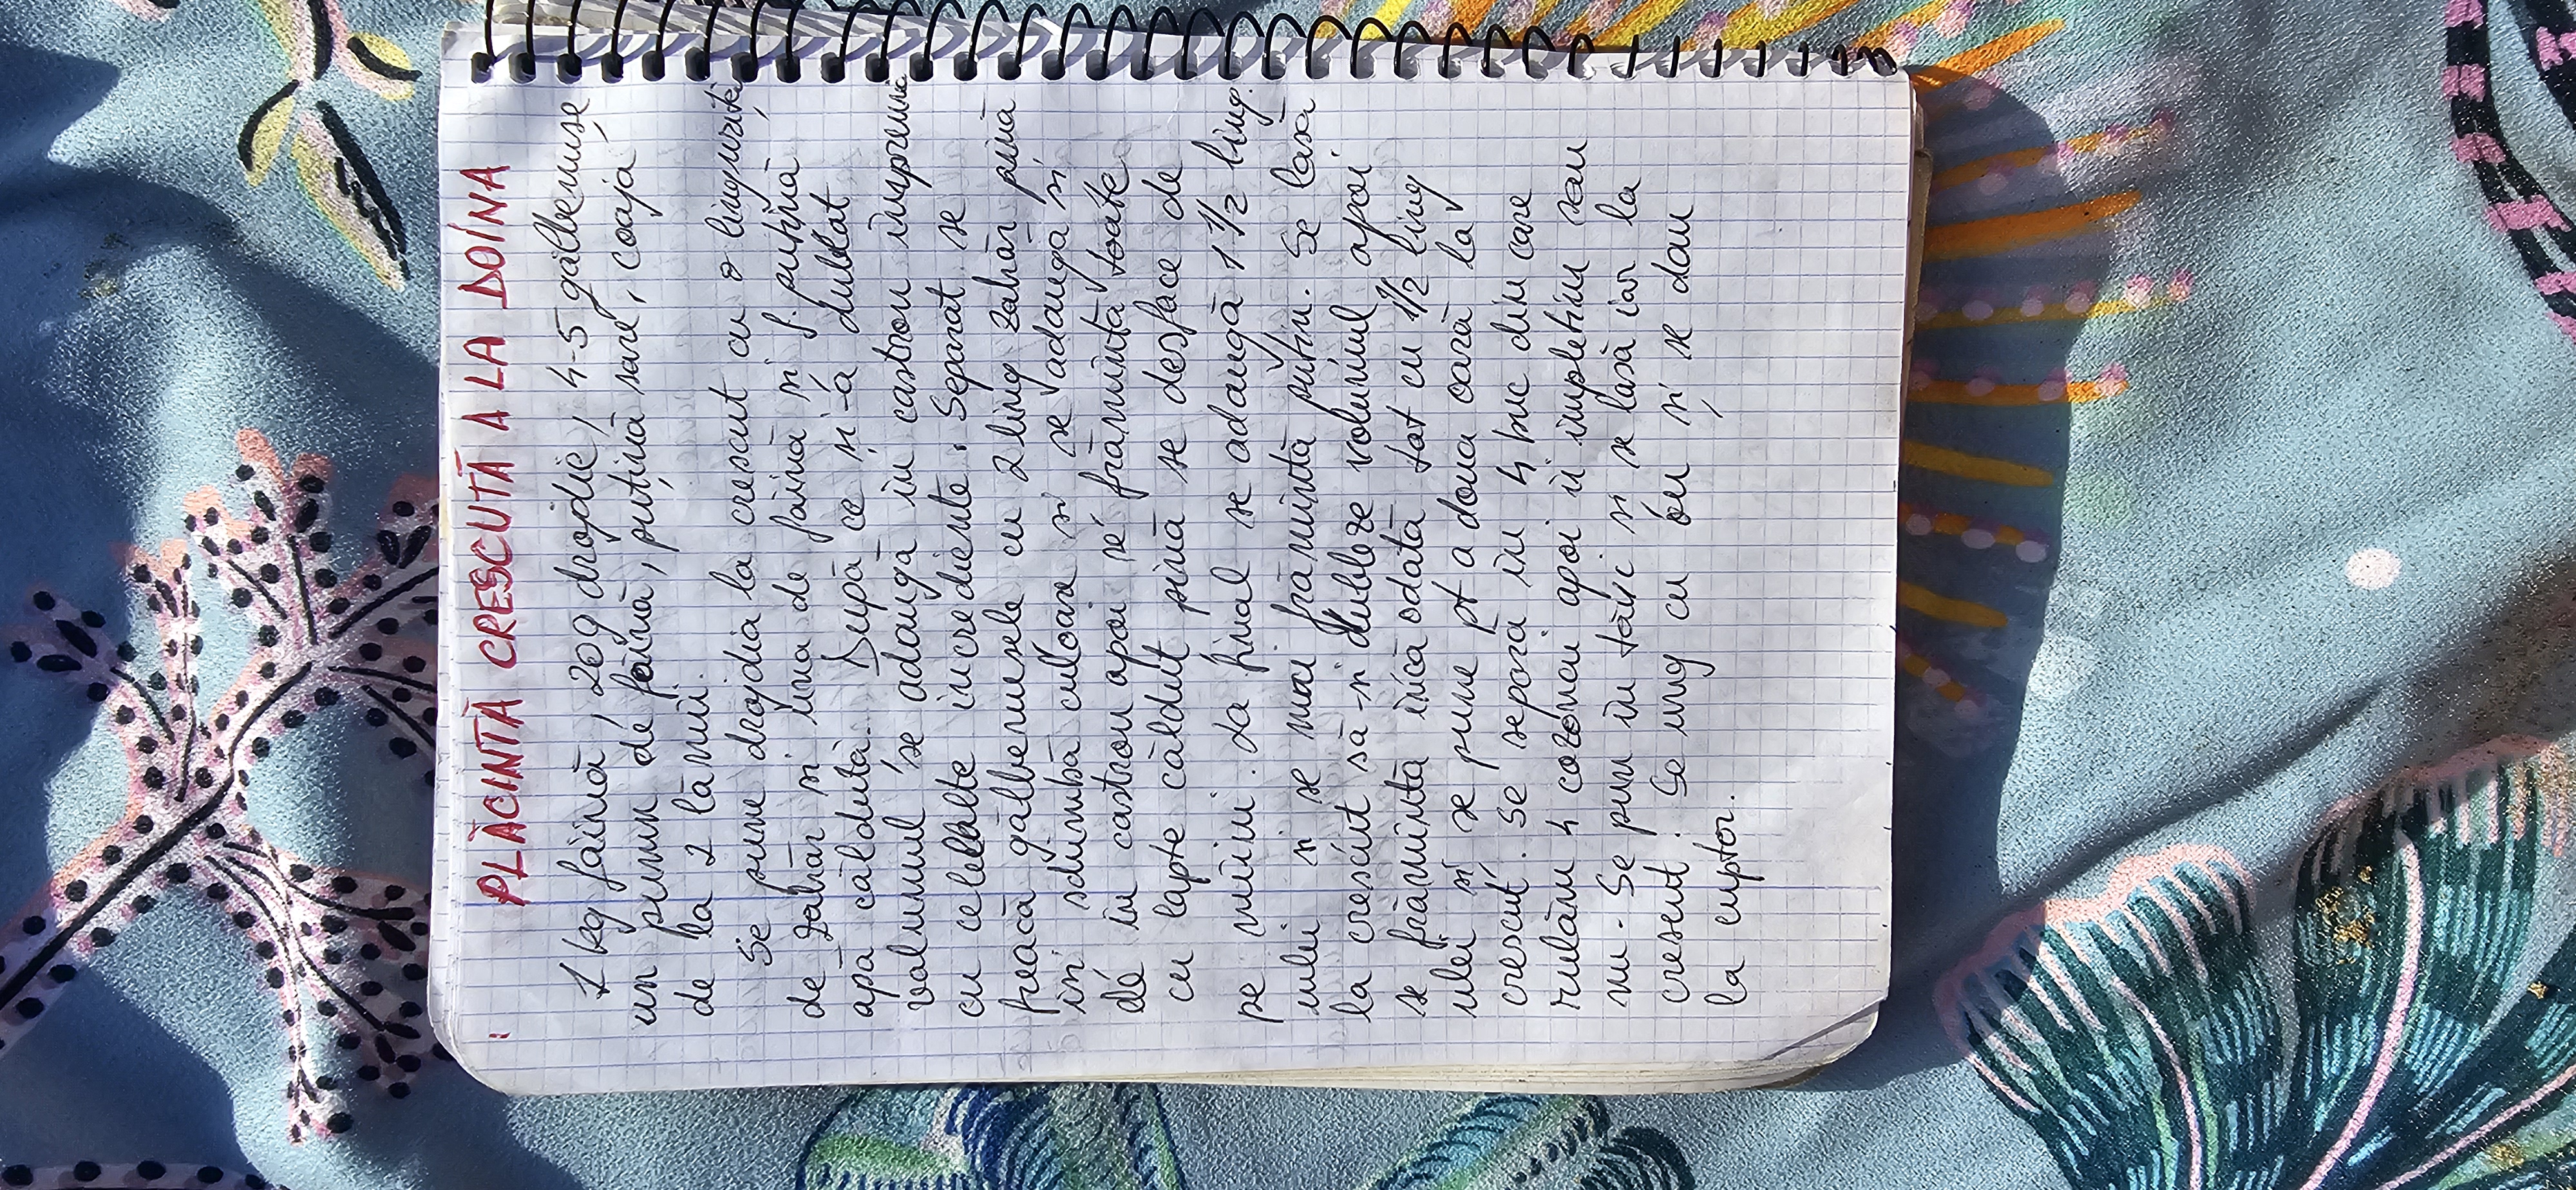 PLĂCINTĂ CRESCUTĂ A LA DOINA
1 kg făină, 20g drojdie, 4-5 gălbenușe
un pumn de făină, puțină sare, coaja
de la 2 lămîi.
Se pune drojdia la crescut cu o linguriță
de zahăr și una de făină și f. puțină
apă călduță. După ce și-a dublat
volumul se adaugă în castron împreună
cu celelalte incrediente. Separat se
freacă gălbenușele cu 2 ling zahăr pînă
iși schimbă culoare și se adaugă și
de în castron apoi se frămîntă toate
cu lapte călduț pînă se desface de
pe mîini. La final se adaugă 1 1/2 ling.
ulei și se mai frămîntă puțin. Se lasă
la crescut să-și dubleze volumul apoi
se frămîntă încă odată tot cu 1/2 ling
ulei și se pune pt a doua oară la
crescut. Se separă în 4 buc din care
rulăm 4 cozonaci apoi îi împletim sau
nu. Se pun în tăvi și se lasă iar la
crescut. Se ung cu ou și se dau
la cuptor.